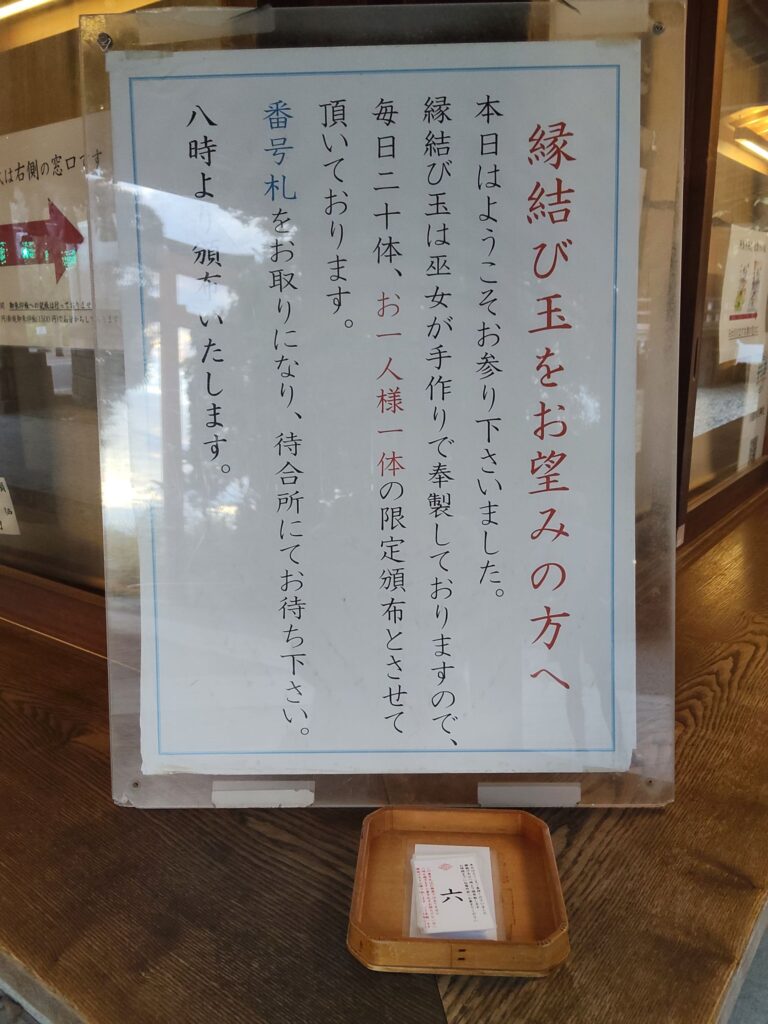 縁結び玉をお望みの方へ
本日はようこそお参り下さいました。
縁結び玉は巫女が手作りで奉製しておりますので、
毎日二十体、お一人様一体の限定頒布とさせて
頂いております。
番号札をお取りになり、待合所にてお待ち下さい。
八時より頒布いたします。
は右側の窓口です
六